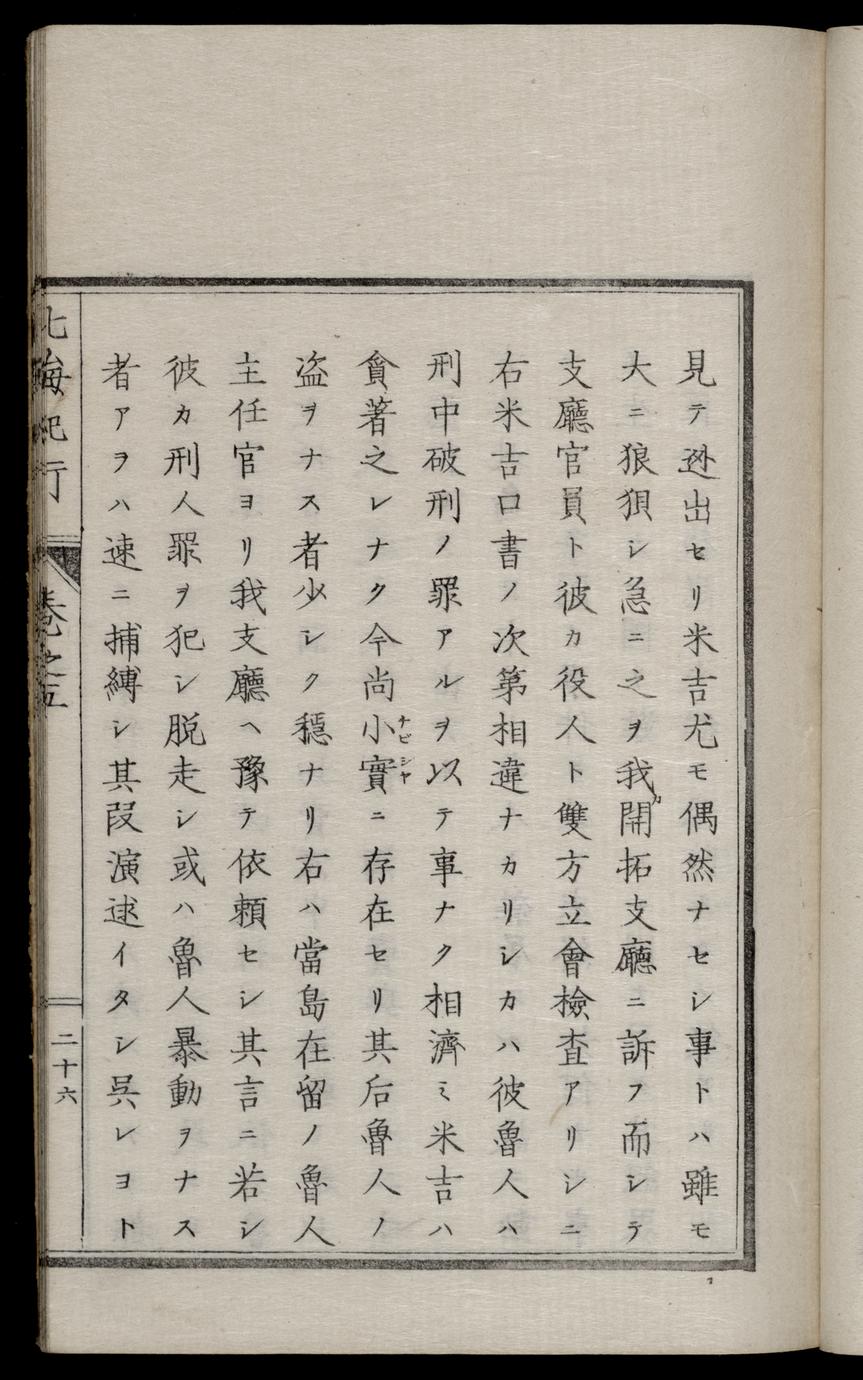 見テ迯出セリ米吉尤モ偶然ナセシ事トハ雖モ
大ニ狼狽シ急ニ之ヲ我カ開拓支廳ニ訴フ而シテ
支廳官員ト彼カ役人ト雙方立會檢査アリシニ
右米吉口書ノ次第相違ナカリシカハ彼魯人ハ
刑中破刑ノ罪アルヲ以テ事ナク相濟ミ米吉ハ
貪著之レナク今尚小實ナビシヤニ存在セリ其后魯人ノ
盜ヲナス者少シク穩ナリ右ハ當島在留ノ魯人
主任官ヨリ我支廳ヘ豫テ依頼セシ其言ニ若シ
彼カ刑人罪ヲ犯シ脱走シ或ハ魯人暴動ヲナス
者アヲハ速ニ捕縛シ其段演逑イタシ呉レヨト
北海紀行
卷之五
二十六